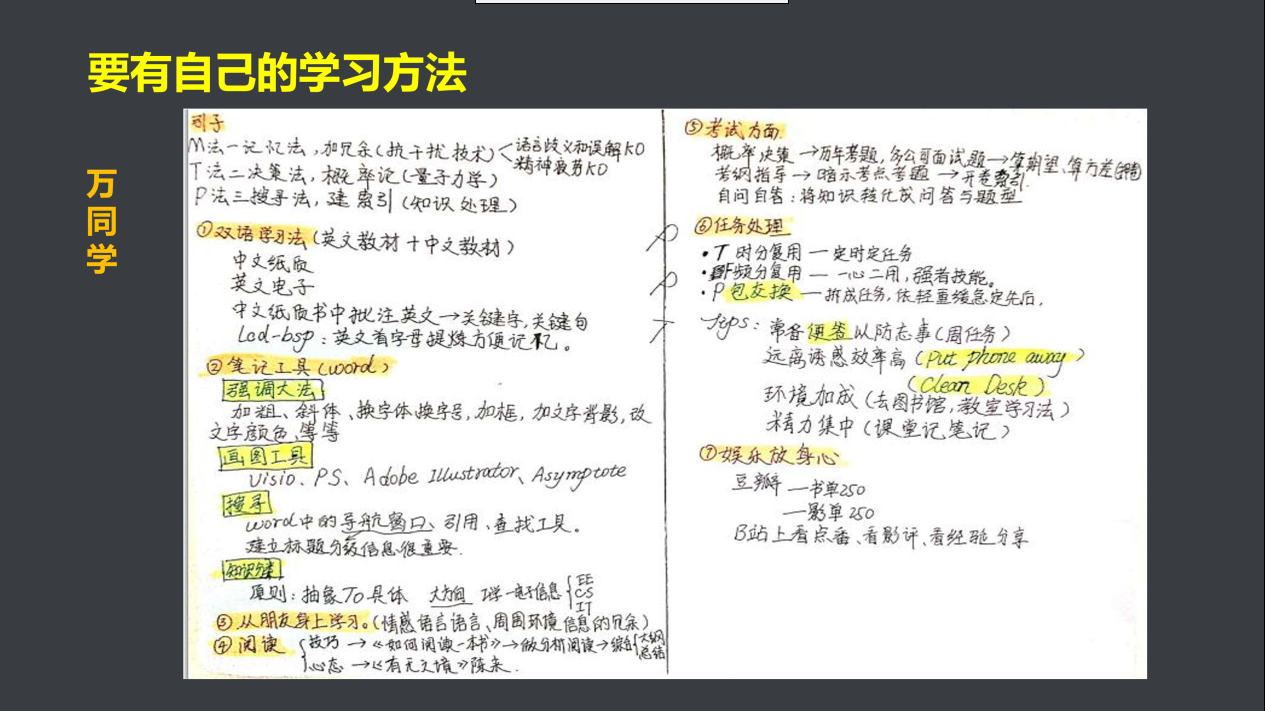 要有自己的学习方法
万同学
引子
M法一记忆法，加冗余(抗干扰技术)
语言歧义和误解KO
精神疲劳KO
T法二决策法，概率论(量子力学)
P法三搜寻法，建索引(知识处理)
①双语学习法(英文教材+中文教材)
中文纸质
英文电子
中文纸质书中批注英文→关键字，关键句
Lcd-bsp：英文首字母提炼方便记忆。
②笔记工具(word)
强调大法
加粗、斜体、换字体换字号，加框，加文字背影，改
文字颜色、等等
画图工具
Visio、PS、Adobe Illustrator、Asymptote
搜寻
word中的导航窗口、引用、查找工具。
建立标题分级信息很重要.
知识分类
原则：抽象To具体 大方向 工学—电子信息
EE
CS
IT
③从朋友身上学习。(情感语言语言、周围环境信息的冗余)
④阅读
技巧→《如何阅读一本书》→做分析阅读→综合
大纲
总结
心态→《有无之境》陈来.
P
P
T
⑤考试方面.
概率决策→历年考题,各公司面试题→算期望、算方差
考纲指导→暗示考点考题→开卷索引.
自问自答：将知识转化成问答与题型
⑥任务处理
·T 时分复用—定时定任务
·F频分复用—一心二用，强者技能。
·P包交换—拆成任务，依轻重缓急定先后，
Tips：常备便签以防忘事(周任务)
远离诱惑效率高(Put phone away)
(Clean Desk)
环境加成(去图书馆，教室学习法)
精力集中(课堂记笔记)
⑦娱乐放身心
豆瓣—书单250
—影单250
B站上看点番、看影评、看经验分享